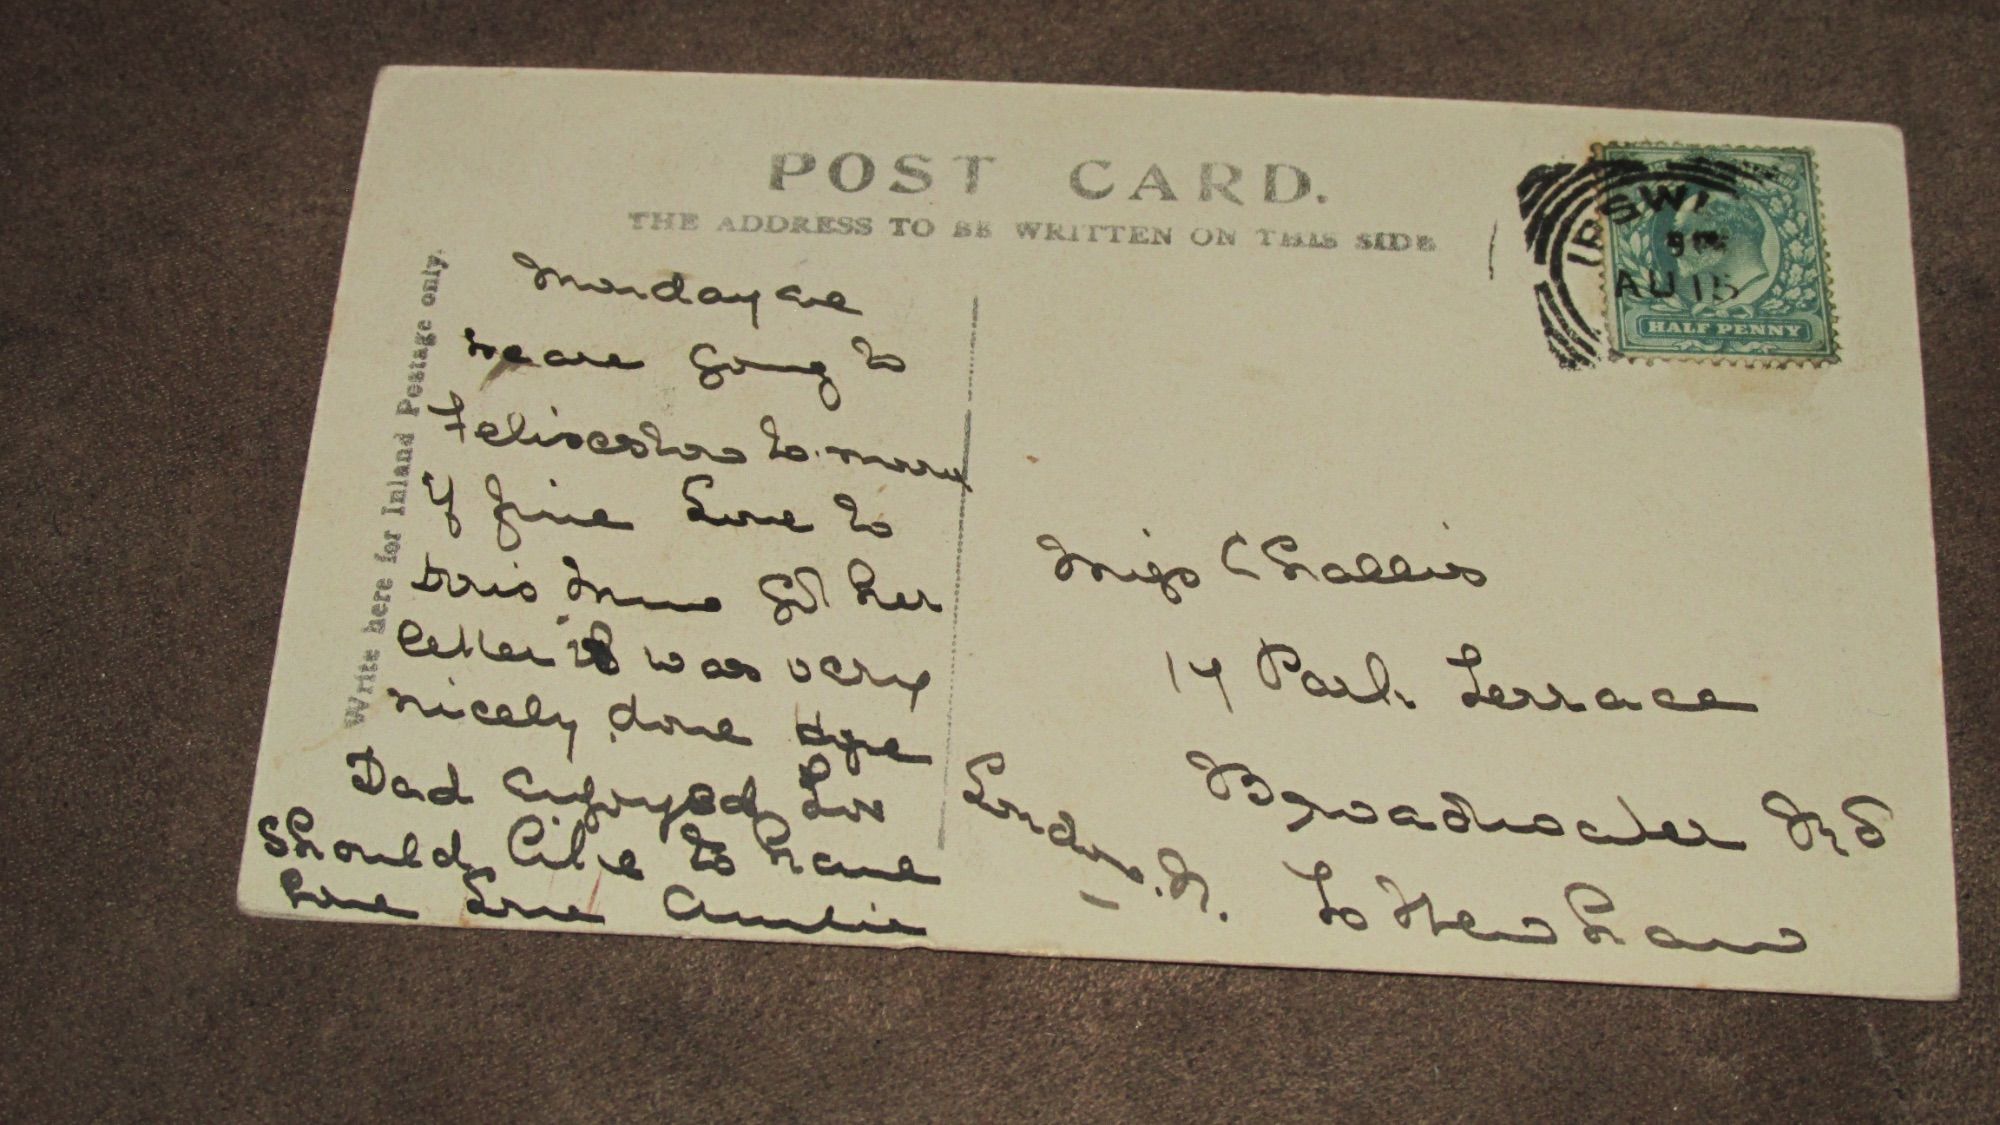 POST CARD.
THE ADDRESS TO BE WRITTEN ON THIS SIDE
Write here for Inland Postage only.
IPSWI
AU 15
HALF PENNY
Monday eve
We are going to
to-morrow
if fine Love to
Doris Mums got her
letter it was very
nicely done
Dad enjoyed
Should like to have
Love
Miss Challis
17 Park Terrace
Broadwater Rd
Tottenham
London. N.